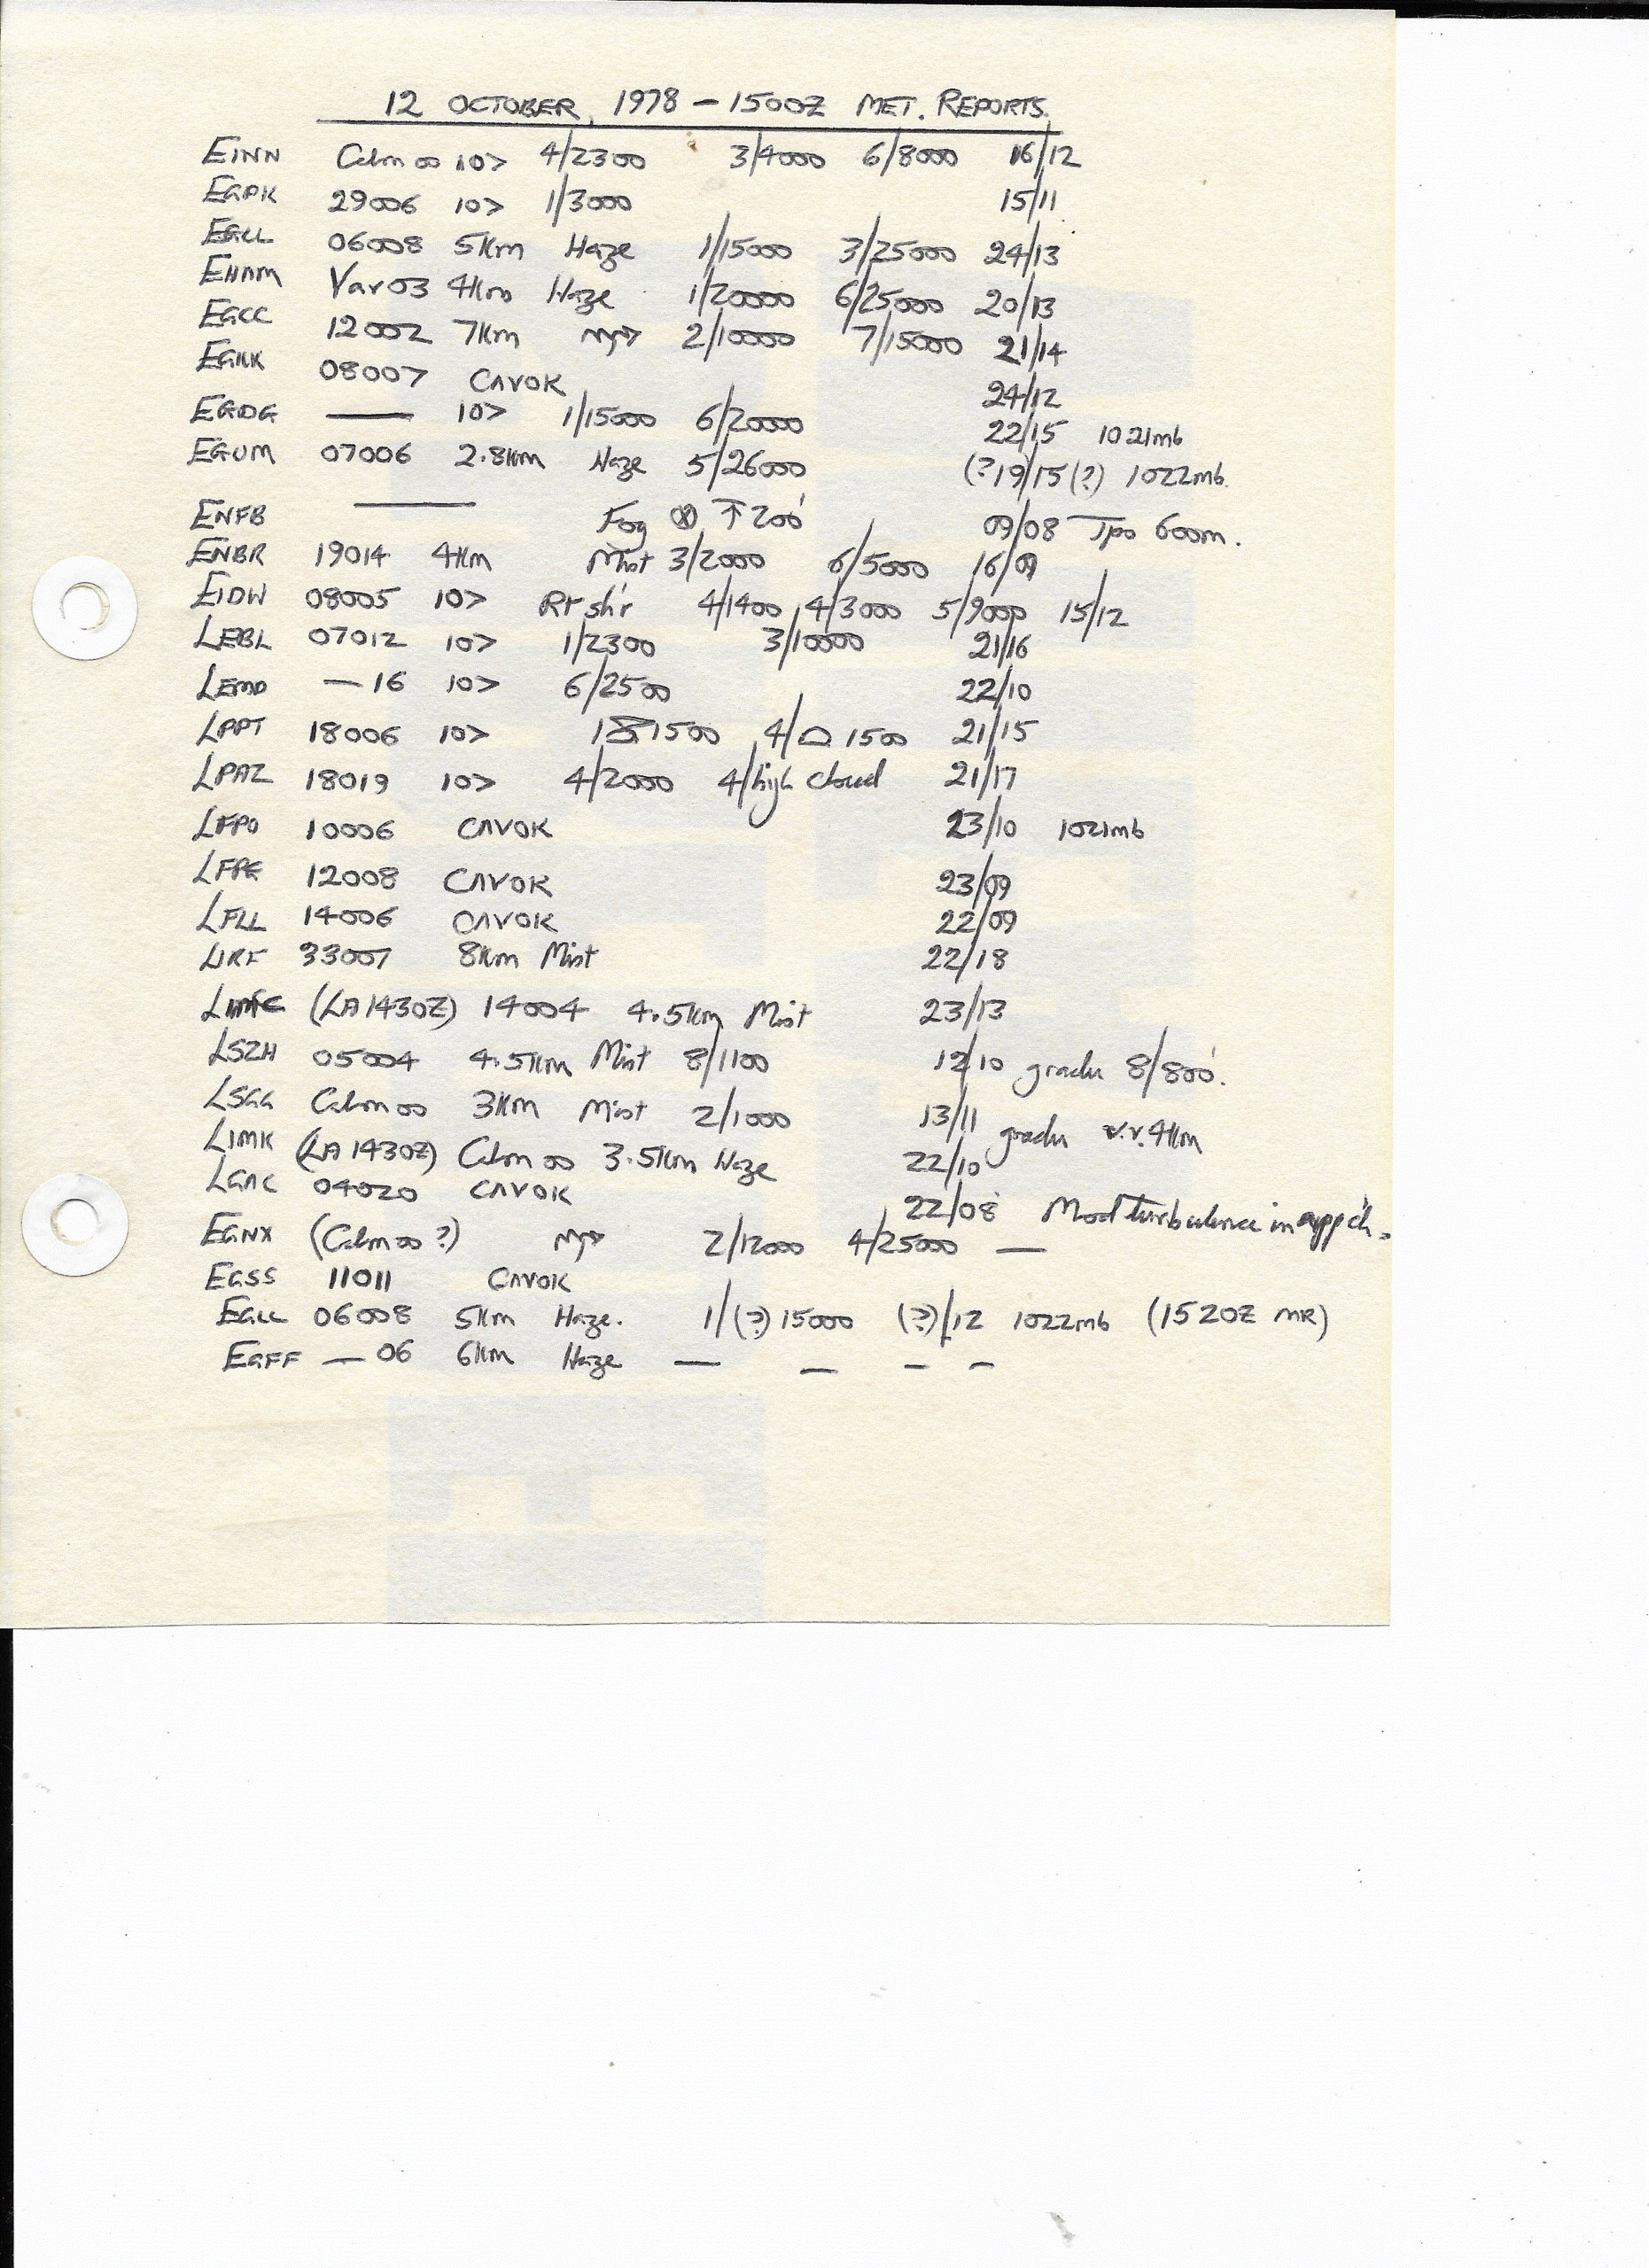 12 OCTOBER, 1978 – 1500Z MET. REPORTS.
EINN Calm 00 10> 4/2300 3/4000 6/8000 16/12
EGPK 29006 10> 1/3000 15/11
EGLL 06008 5Km Haze 1/15000 3/25000 24/13
EHAM Var 03 4Km Haze 1/20000 6/25000 20/13
EGCC 12002 7Km 2/10000 7/15000 21/14
EGKK 08007 CAVOK 24/12
EGDG — 10> 1/15000 6/20000 22/15 1021mb
EGUM 07006 2.8Km Haze 5/26000 (?19/15(?) 1022mb.
ENFB — Fog ⊗ ↑ 200' 09/08 Tpo 600m.
ENBR 19014 4Km Mist 3/2000 6/5000 16/09
EIDW 08005 10> Rt sh'r 4/1400 4/3000 5/9000 15/12
LEBL 07012 10> 1/2300 3/10000 21/16
LEMD — 16 10> 6/2500 22/10
LPPT 18006 10> 1500 4/⌓ 1500 21/15
LPAZ 18019 10> 4/2000 4/high cloud 21/17
LFPO 10006 CAVOK 23/10 1021mb
LFPG 12008 CAVOK 23/09
LFLL 14006 CAVOK 22/09
LIRF 33007 8Km Mist 22/18
(LA 1430Z) 14004 4.5Km Mist 23/13
LSZH 05004 4.5Km Mist 8/1100 12/10 gradu 8/800'.
LSGG Calm 00 3Km Mist 2/1000 13/11 gradu v.v. 4Km
LIMK (LA 1430Z) Calm 00 3.5Km Haze 22/10
LGAC 04020 CAVOK 22/08 Mod turbulence in app'ch.
EGNX (Calm 00 ?) 2/12000 4/25000 —
EGSS 11011 CAVOK
EGLL 06008 5Km Haze. 1/(?) 15000 (?)/12 1022mb (1520Z MR)
EGFF — 06 6Km Haze — — — —